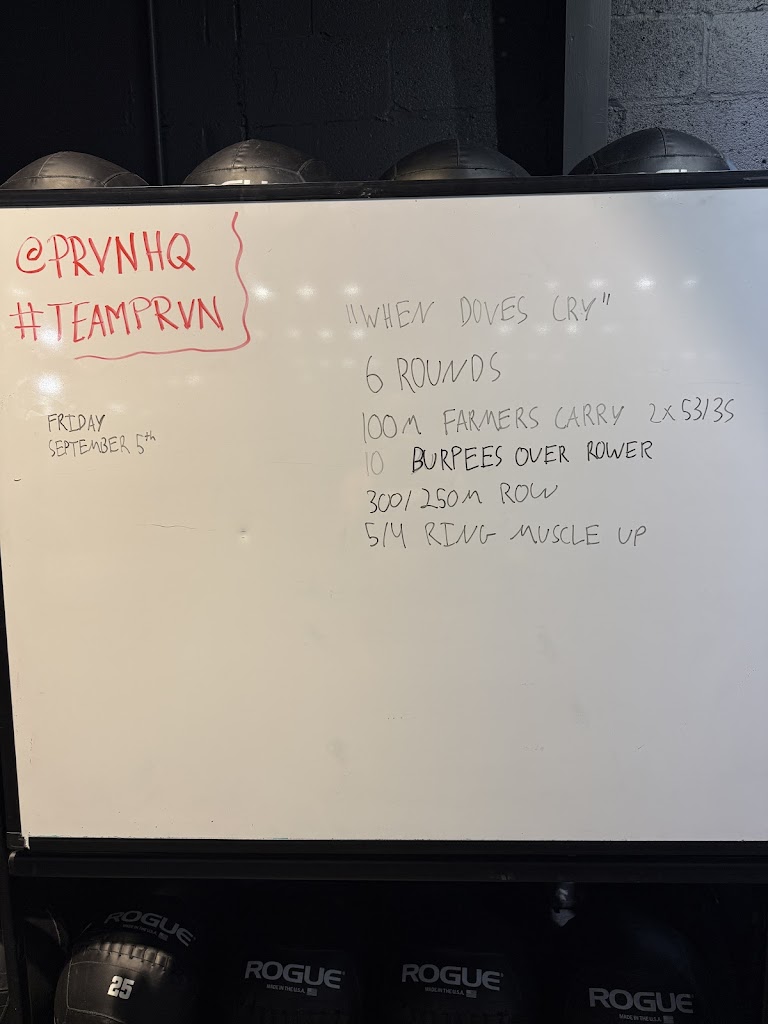 @PRVNHQ
#TEAMPRVN
"WHEN DOVES CRY"
6 ROUNDS
100M FARMERS CARRY 2x53/35
10 BURPEES OVER ROWER
300/250M ROW
5/4 RING MUSCLE UP
FRIDAY
SEPTEMBER 5th
ROGUE
MADE IN THE U.S.A.
25
ROGUE
MADE IN THE U.S.A.
ROGUE
MADE IN THE U.S.A.
ROGUE
MADE IN THE U.S.A.